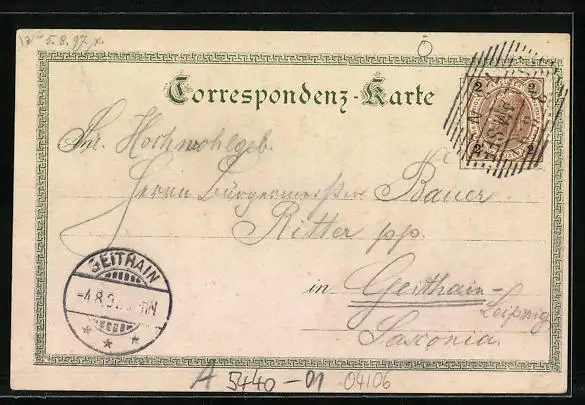 5.8.97
Correspondenz-Karte
2 2
2 2
Snr. Hochwohlgeb.
Herrn Bürgermeister Bauer
Ritter pp.
in Geithain-
Leipzig
Saxonia.
GEITHAIN
-4.8.9
* * *
A 5440-01 04106